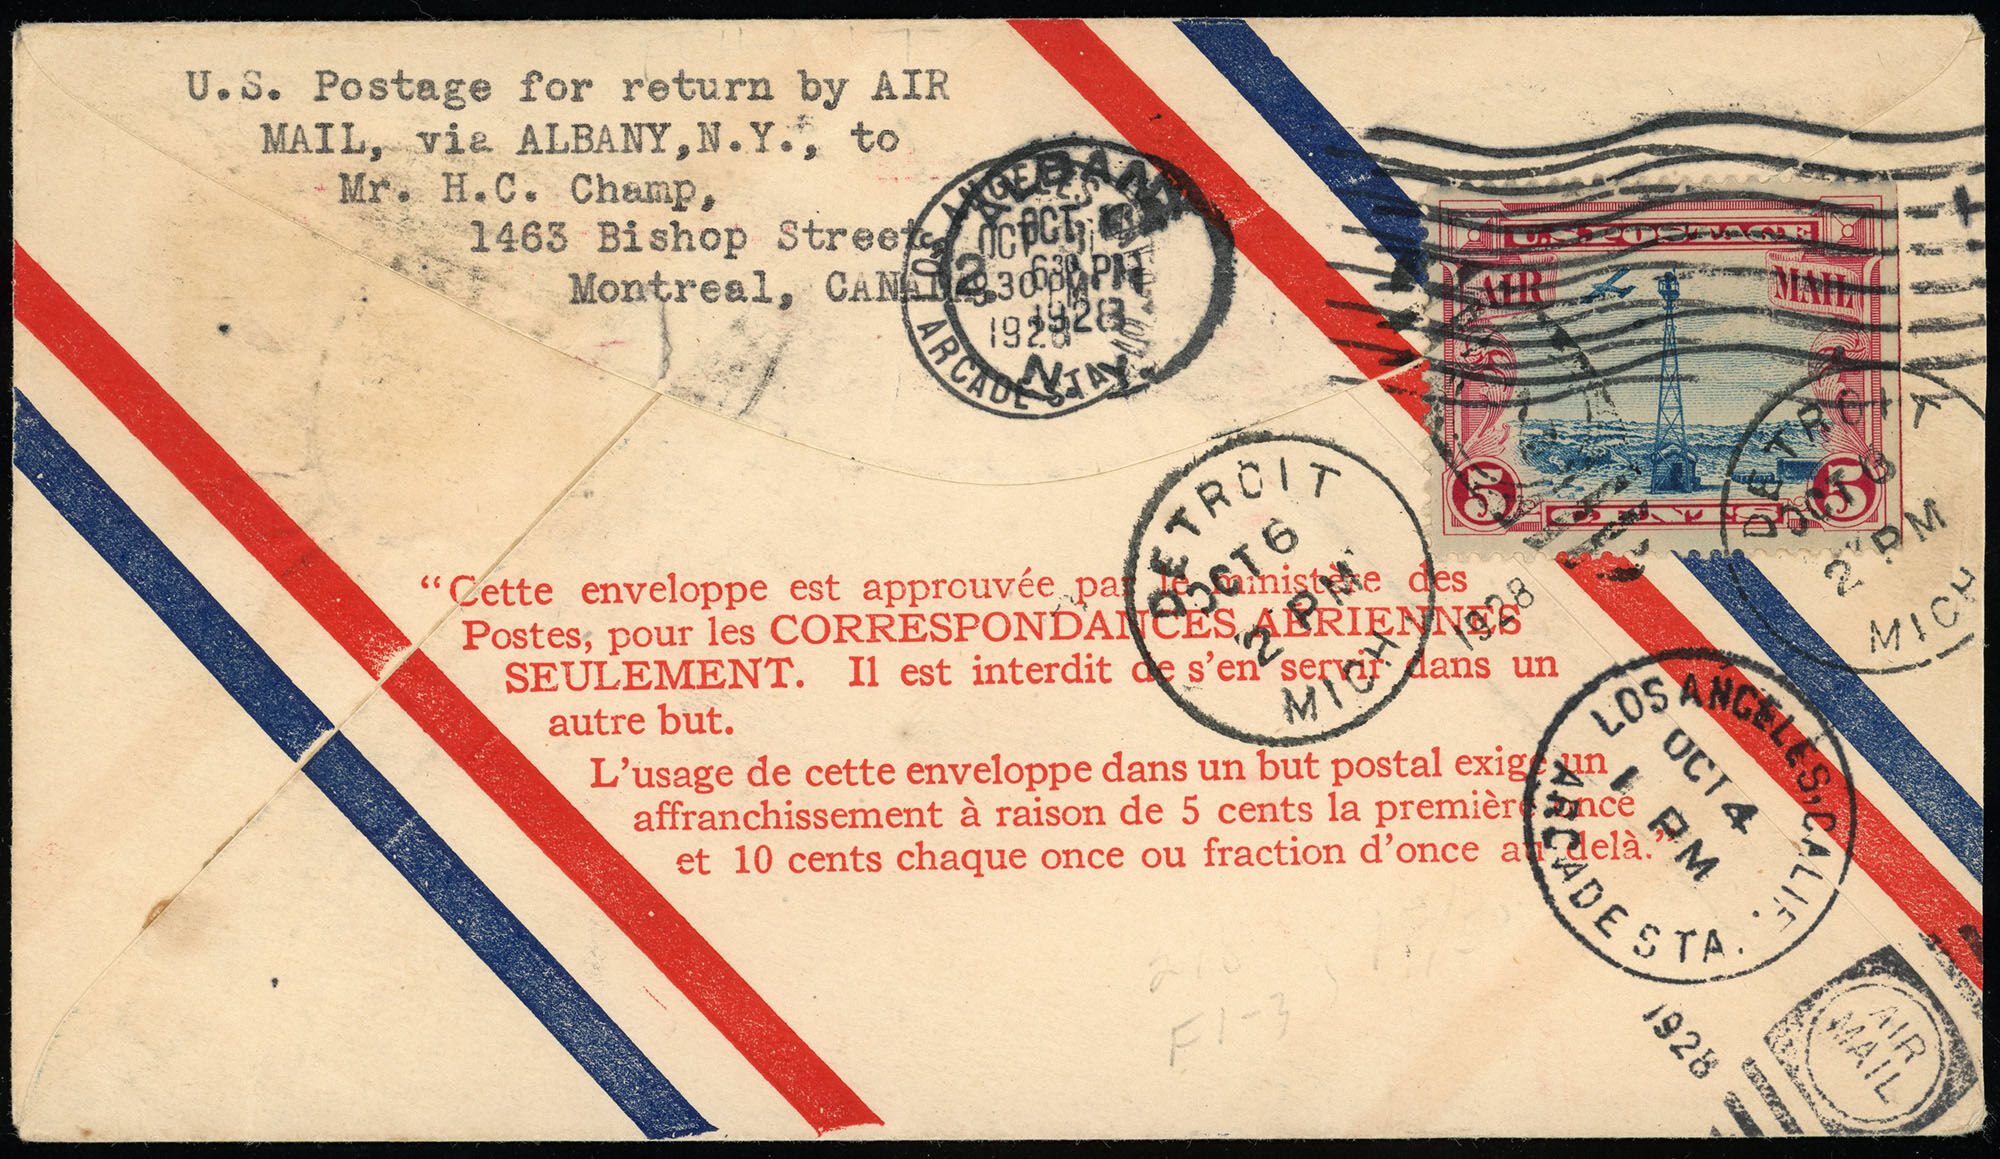 U.S. Postage for return by AIR
MAIL, via ALBANY, N.Y., to
Mr. H.C. Champ,
1463 Bishop Street
Montreal, CANADA.
LOS ANGELES
ARCADE STA.
OCT
930 PM
1928
ALBANY
OCT
2
630 PM
1928
N.Y.
U.S. POSTAGE
AIR MAIL
5 CENTS 5
DETROIT
OCT 6
2 PM
MICH
1928
DETROIT
OCT 6
2 PM
MICH
“Cette enveloppe est approuvée par le ministère des
Postes, pour les CORRESPONDANCES AERIENNES
SEULEMENT. Il est interdit de s’en servir dans un
autre but.
L’usage de cette enveloppe dans un but postal exige un
affranchissement à raison de 5 cents la première once
et 10 cents chaque once ou fraction d’once au delà.”
LOS ANGELES, CALIF.
OCT 4
1 PM
ARCADE STA.
1928
AIR
MAIL
F1-3